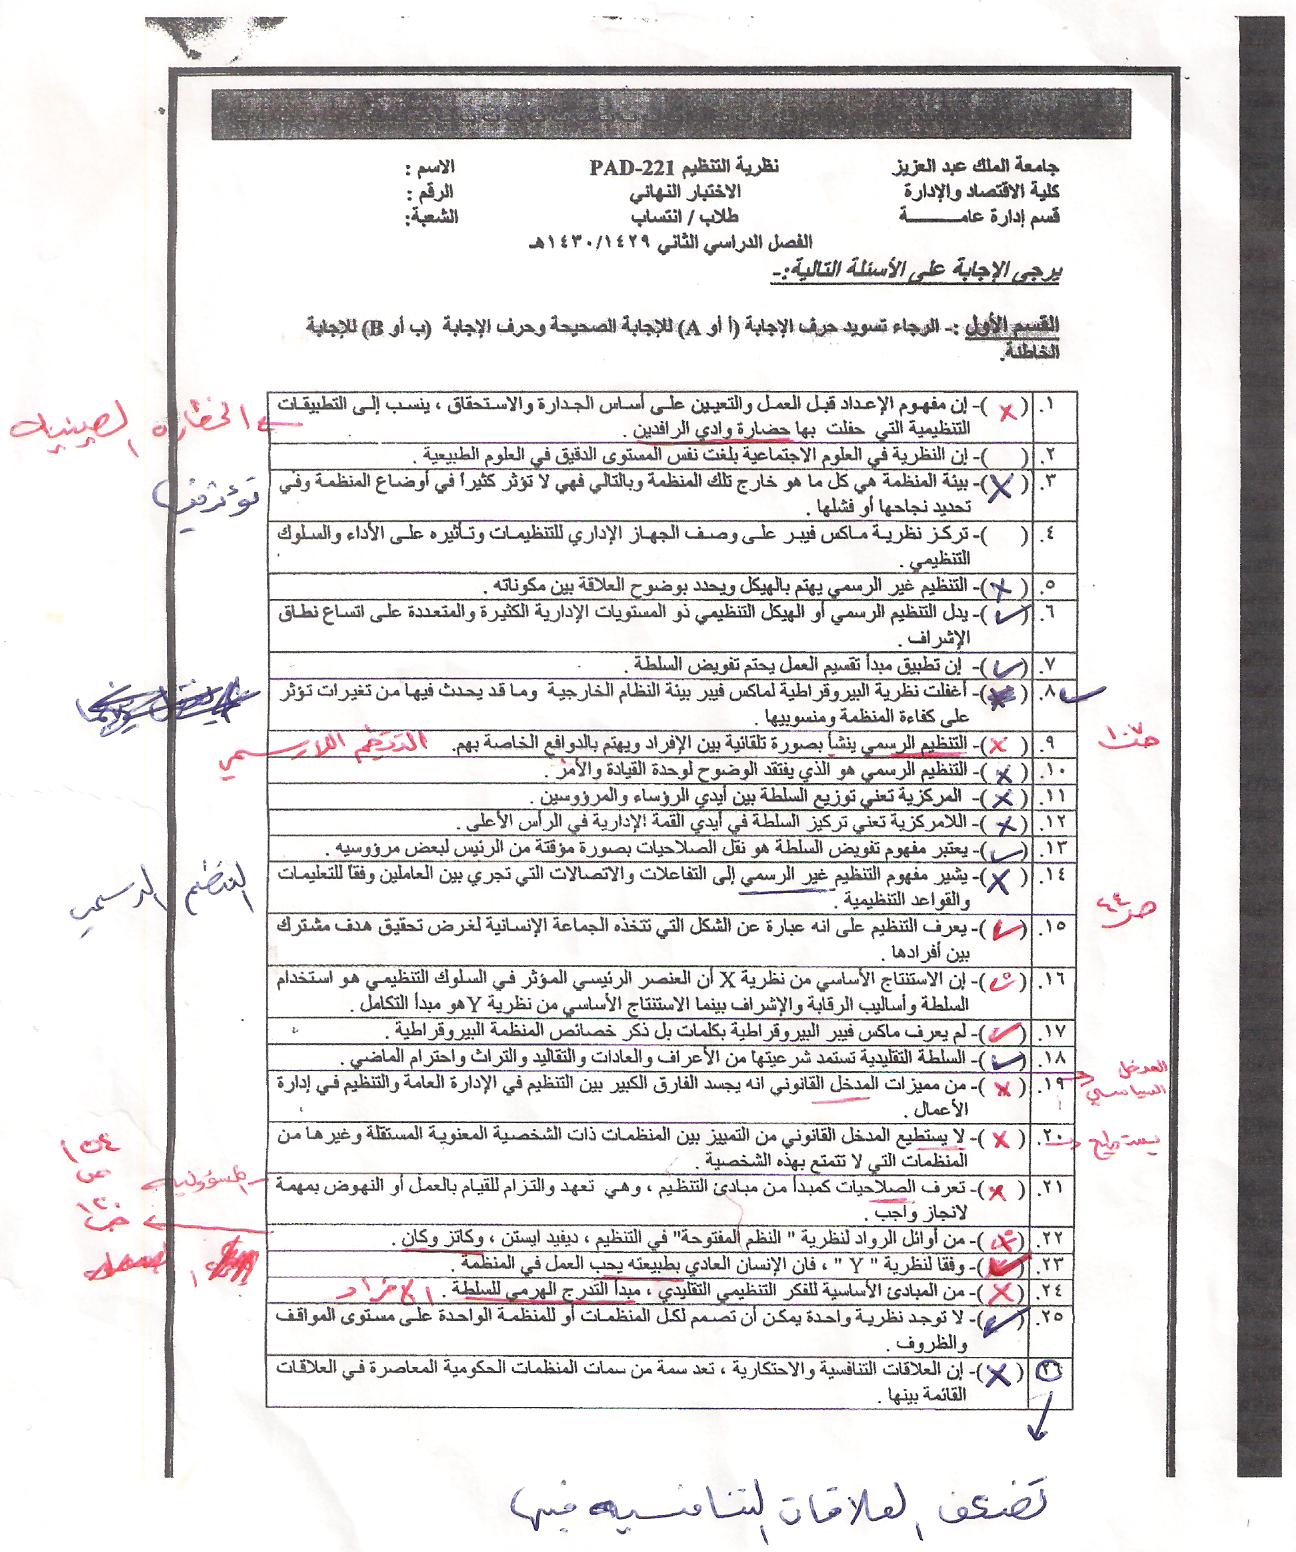 جامعة الملك عبد العزيز نظرية التنظيم PAD-221 الاسم :
كلية الاقتصاد والإدارة الاختبار النهائي الرقم :
قسم إدارة عامـــــــة طلاب / انتساب الشعبة:
الفصل الدراسي الثاني ١٤٣٠/١٤٢٩هـ
يرجى الإجابة على الأسئلة التالية:-
القسم الأول :- الرجاء تسويد حرف الإجابة (أ أو A) للإجابة الصحيحة وحرف الإجابة (ب أو B) للإجابة
الخاطئة.
١. ( × )- إن مفهوم الإعداد قبل العمل والتعيين على أساس الجدارة والاستحقاق ، ينسب إلى التطبيقات
التنظيمية التي حفلت بها حضارة وادي الرافدين .
الحضارة الصينية
٢. ( )- إن النظرية في العلوم الاجتماعية بلغت نفس المستوى الدقيق في العلوم الطبيعية .
٣. ( × )- بيئة المنظمة هي كل ما هو خارج تلك المنظمة وبالتالي فهي لا تؤثر كثيراً في أوضاع المنظمة وفي
تحديد نجاحها أو فشلها .
تؤثر فيها
٤. ( )- تركز نظرية ماكس فيبر على وصف الجهاز الإداري للتنظيمات وتأثيره على الأداء والسلوك
التنظيمي .
٥. ( × )- التنظيم غير الرسمي يهتم بالهيكل ويحدد بوضوح العلاقة بين مكوناته .
٦. ( ✓ )- يدل التنظيم الرسمي أو الهيكل التنظيمي ذو المستويات الإدارية الكثيرة والمتعددة على اتساع نطاق
الإشراف .
٧. ( ✓ )- إن تطبيق مبدأ تقسيم العمل يحتم تفويض السلطة .
✓ ٨. ( )- أغفلت نظرية البيروقراطية لماكس فيبر بيئة النظام الخارجية وما قد يحدث فيها من تغيرات تؤثر
على كفاءة المنظمة ومنسوبيها .
ص١٠٧
٩. ( × )- التنظيم الرسمي ينشأ بصورة تلقائية بين الإفراد ويهتم بالدوافع الخاصة بهم. التنظيم اللارسمي
١٠. ( × )- التنظيم الرسمي هو الذي يفتقد الوضوح لوحدة القيادة والأمر .
١١. ( × )- المركزية تعني توزيع السلطة بين أيدي الرؤساء والمرؤوسين .
١٢. ( × )- اللامركزية تعني تركيز السلطة في أيدي القمة الإدارية في الرأس الأعلى .
١٣. ( ✓ )- يعتبر مفهوم تفويض السلطة هو نقل الصلاحيات بصورة مؤقتة من الرئيس لبعض مرؤوسيه .
١٤. ( × )- يشير مفهوم التنظيم غير الرسمي إلى التفاعلات والاتصالات التي تجري بين العاملين وفقاً للتعليمات
والقواعد التنظيمية .
التنظيم الرسمي
ص٤٤
١٥. ( ✓ )- يعرف التنظيم على انه عبارة عن الشكل التي تتخذه الجماعة الإنسانية لغرض تحقيق هدف مشترك
بين أفرادها .
١٦. ( )- إن الاستنتاج الأساسي من نظرية X أن العنصر الرئيسي المؤثر في السلوك التنظيمي هو استخدام
السلطة وأساليب الرقابة والإشراف بينما الاستنتاج الأساسي من نظرية Y هو مبدأ التكامل .
١٧. ( ✓ )- لم يعرف ماكس فيبر البيروقراطية بكلمات بل ذكر خصائص المنظمة البيروقراطية .
١٨. ( ✓ )- السلطة التقليدية تستمد شرعيتها من الأعراف والعادات والتقاليد والتراث واحترام الماضي .
المدخل السياسي
١٩. ( × )- من مميزات المدخل القانوني انه يجسد الفارق الكبير بين التنظيم في الإدارة العامة والتنظيم في إدارة
الأعمال .
٢٠. ( × )- لا يستطيع المدخل القانوني من التمييز بين المنظمات ذات الشخصية المعنوية المستقلة وغيرها من
المنظمات التي لا تتمتع بهذه الشخصية .
يستطيع
٢١. ( × )- تعرف الصلاحيات كمبدأ من مبادئ التنظيم ، وهي تعهد والتزام للقيام بالعمل أو النهوض بمهمة
لانجاز واجب .
المسؤولية
٢٢. ( )- من أوائل الرواد لنظرية " النظم المفتوحة" في التنظيم ، ديفيد ايستن ، وكاتز وكان .
٢٣. ( ✓ )- وفقا لنظرية " Y " ، فان الإنسان العادي بطبيعته يحب العمل في المنظمة .
٢٤. ( × )- من المبادئ الأساسية للفكر التنظيمي التقليدي ، مبدأ التدرج الهرمي للسلطة . الافراد
٢٥. ( ✓ )- لا توجد نظرية واحدة يمكن أن تصمم لكل المنظمات أو للمنظمة الواحدة على مستوى المواقف
والظروف .
٢٦. ( × )- إن العلاقات التنافسية والاحتكارية ، تعد سمة من سمات المنظمات الحكومية المعاصرة في العلاقات
القائمة بينها .
تضعف العلاقات التنافسية فيها